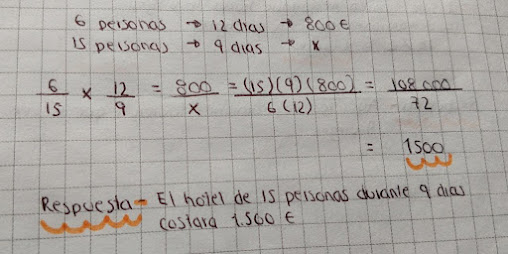 6 personas → 12 dias → 800 €
15 personas → 9 dias → x
6/15 × 12/9 = 800/x = (15)(9)(800)/6(12) = 108 000/72
= 1500
Respuesta- El hotel de 15 personas durante 9 dias
costara 1.500 €